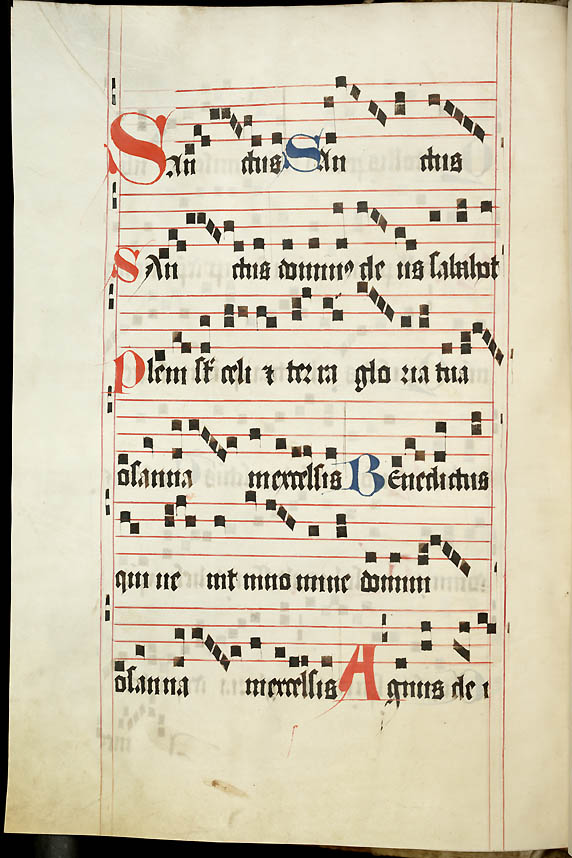 Sanctus Sanctus
Sanctus domin9 deus sabahot
Pleni st celi z terra gloria tua
osanna inexcelsis Benedictus
qui uenit innomine domini
osanna inexcelsis Agnus de i